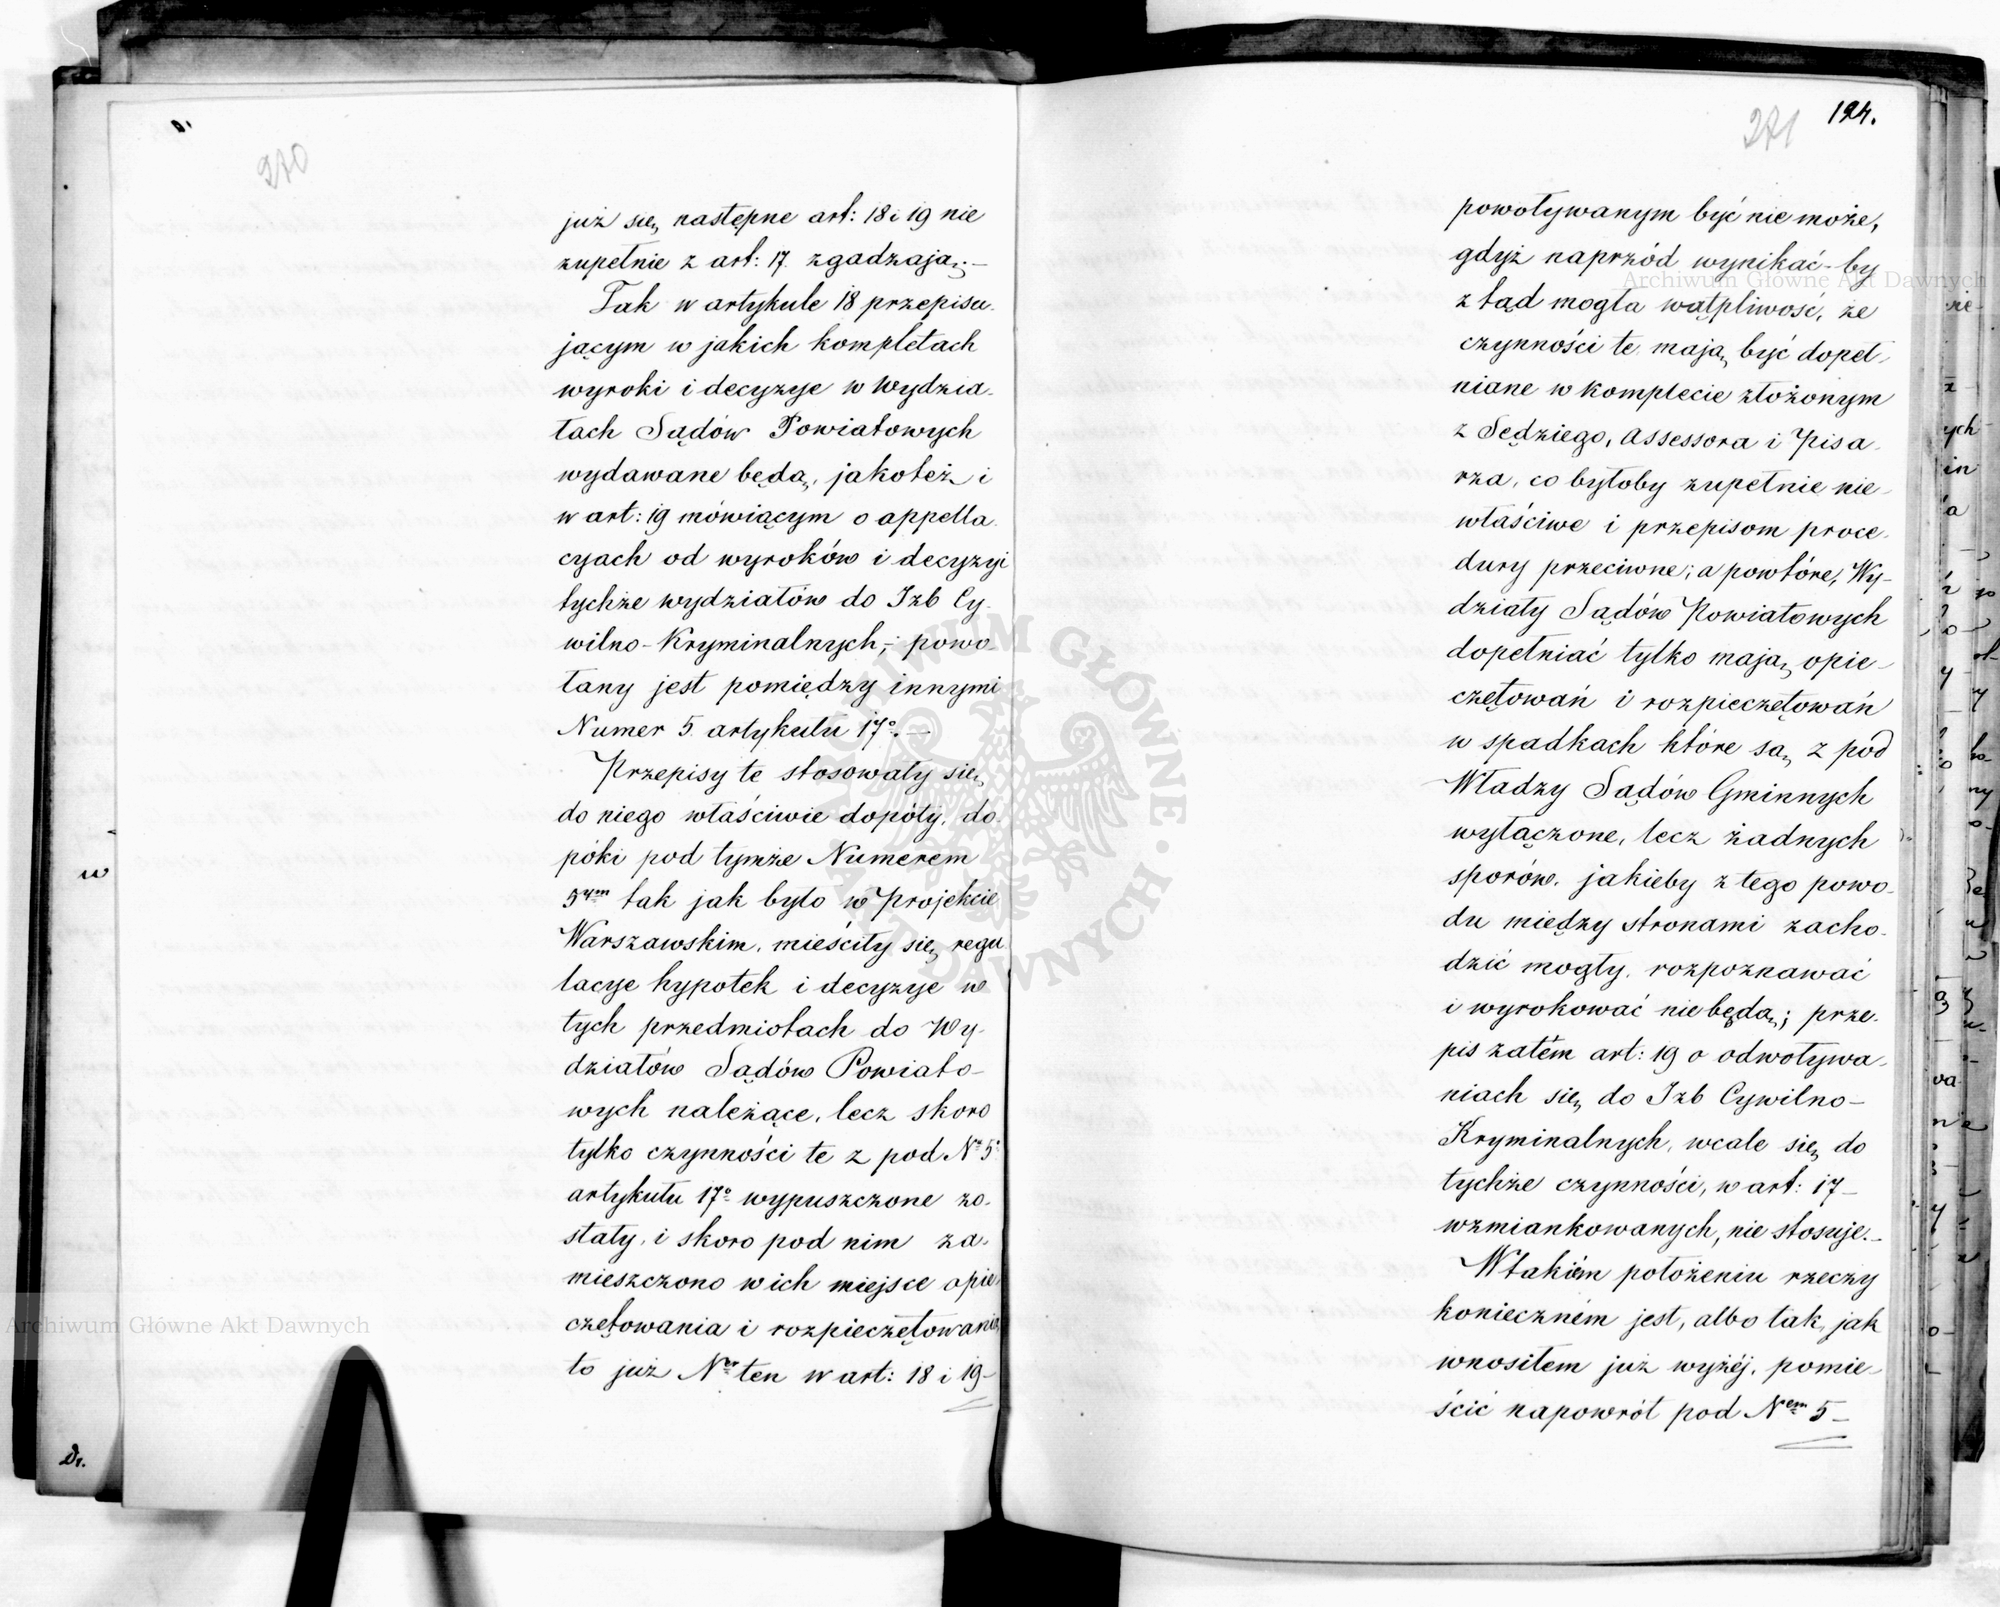 270
już się następne art: 18 i 19 nie
zupełnie z art: 17. zgadzają.—
Tak w artykule 18 przepisu-
jącym w jakich kompletach
wyroki i decyzye w Wydzia-
łach Sądów Powiatowych
wydawane będą, jakoteż i
w art: 19 mówiącym o appella-
cyach od wyroków i decyzyi
tychże wydziałów do Izb Cy-
wilno-Kryminalnych,- powo-
łany jest pomiędzy innymi
Numer 5. artykułu 17º.—
Przepisy te stosowały się
do niego właściwie dopóty, do-
póki pod tymże Numerem
5ym tak jak było w Projekcie
Warszawskim, mieściły się regu-
lacye hypotek i decyzye w
tych przedmiotach do Wy-
działów Sądów Powiato-
wych należące, lecz skoro
tylko czynności te z pod Nº 5º
artykułu 17º wypuszczone zo-
stały, i skoro pod nim za-
mieszczono w ich miejsce opie-
czętowania i rozpieczętowania
to już Nr ten w art: 18 i 19-
271
124.
powoływanym być nie może,
gdyż naprzód wynikać-by
ztąd mogła wątpliwość, że
czynności te mają być dopeł-
niane w komplecie złożonym
z Sędziego, Assessora i Pisa-
rza, co byłoby zupełnie nie-
właściwe i przepisom proce-
dury przeciwne; a powtóre, Wy-
działy Sądów Powiatowych
dopełniać tylko mają opie-
czętowań i rozpieczętowań
w spadkach które są z pod
Władzy Sądów Gminnych
wyłączone, lecz żadnych
sporów, jakieby z tego powo-
du między stronami zacho-
dzić mogły, rozpoznawać
i wyrokować nie będą; prze-
pis zatém art: 19 o odwoływa-
niach się do Izb Cywilno-
Kryminalnych, wcale się do
tychże czynności, w art: 17-
wzmiankowanych, nie stosuje.—
W takiém położeniu rzeczy
konieczném jest, albo tak, jak
wnosiłem już wyżéj, pomie-
ścić napowrót pod Nem 5-
Archiwum Główne Akt Dawnych
Archiwum Główne Akt Dawnych
ARCHIWUM GŁÓWNE AKT DAWNYCH